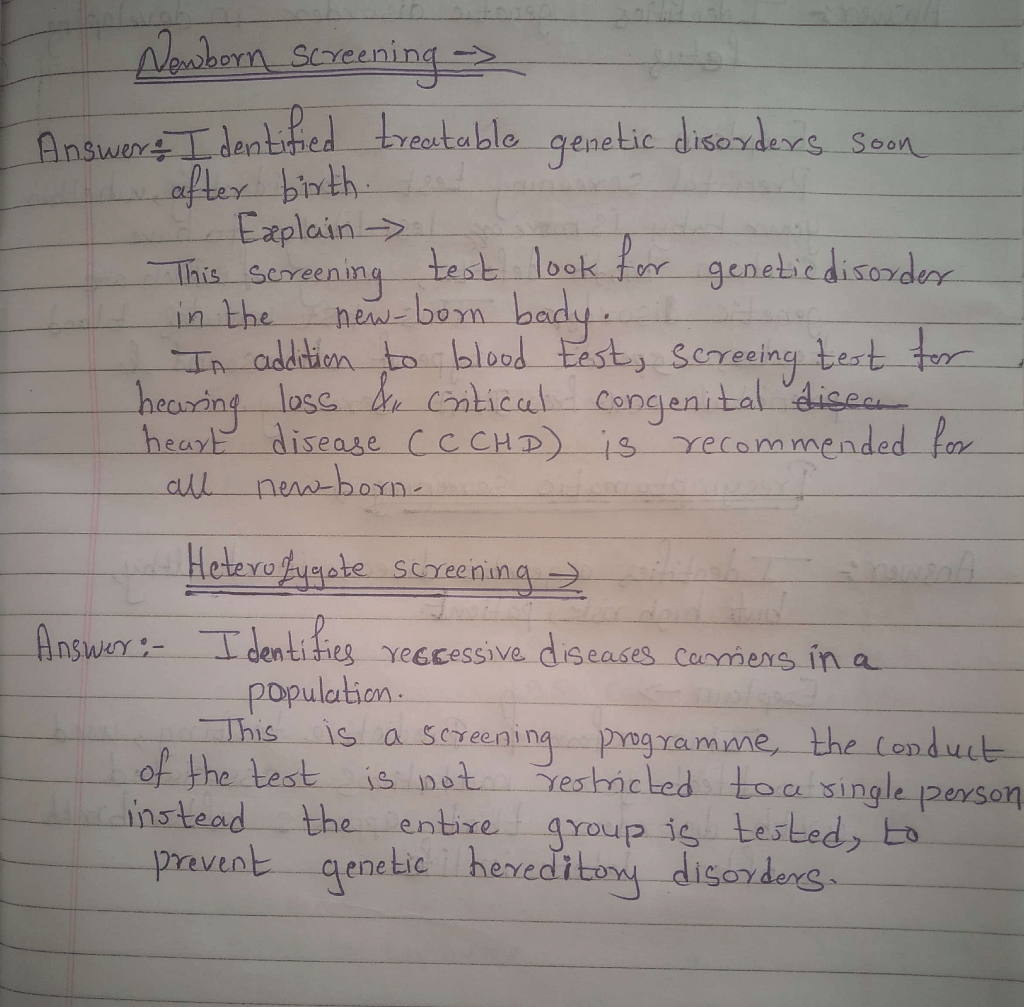 Newborn screening →
Answer:- Identified treatable genetic disorders soon
after birth.
Explain →
This screening test look for genetic disorder
in the new-born bady.
In addition to blood test, screeing test for
hearing loss & critical congenital disea
heart disease (CCHD) is recommended for
all new-born-
Heterozygote screening →
Answer:- Identifies reccessive diseases carriers in a
population.
This is a screening programme, the conduct
of the test is not restricted to a single person
instead the entire group is tested, to
prevent genetic hereditory disorders.